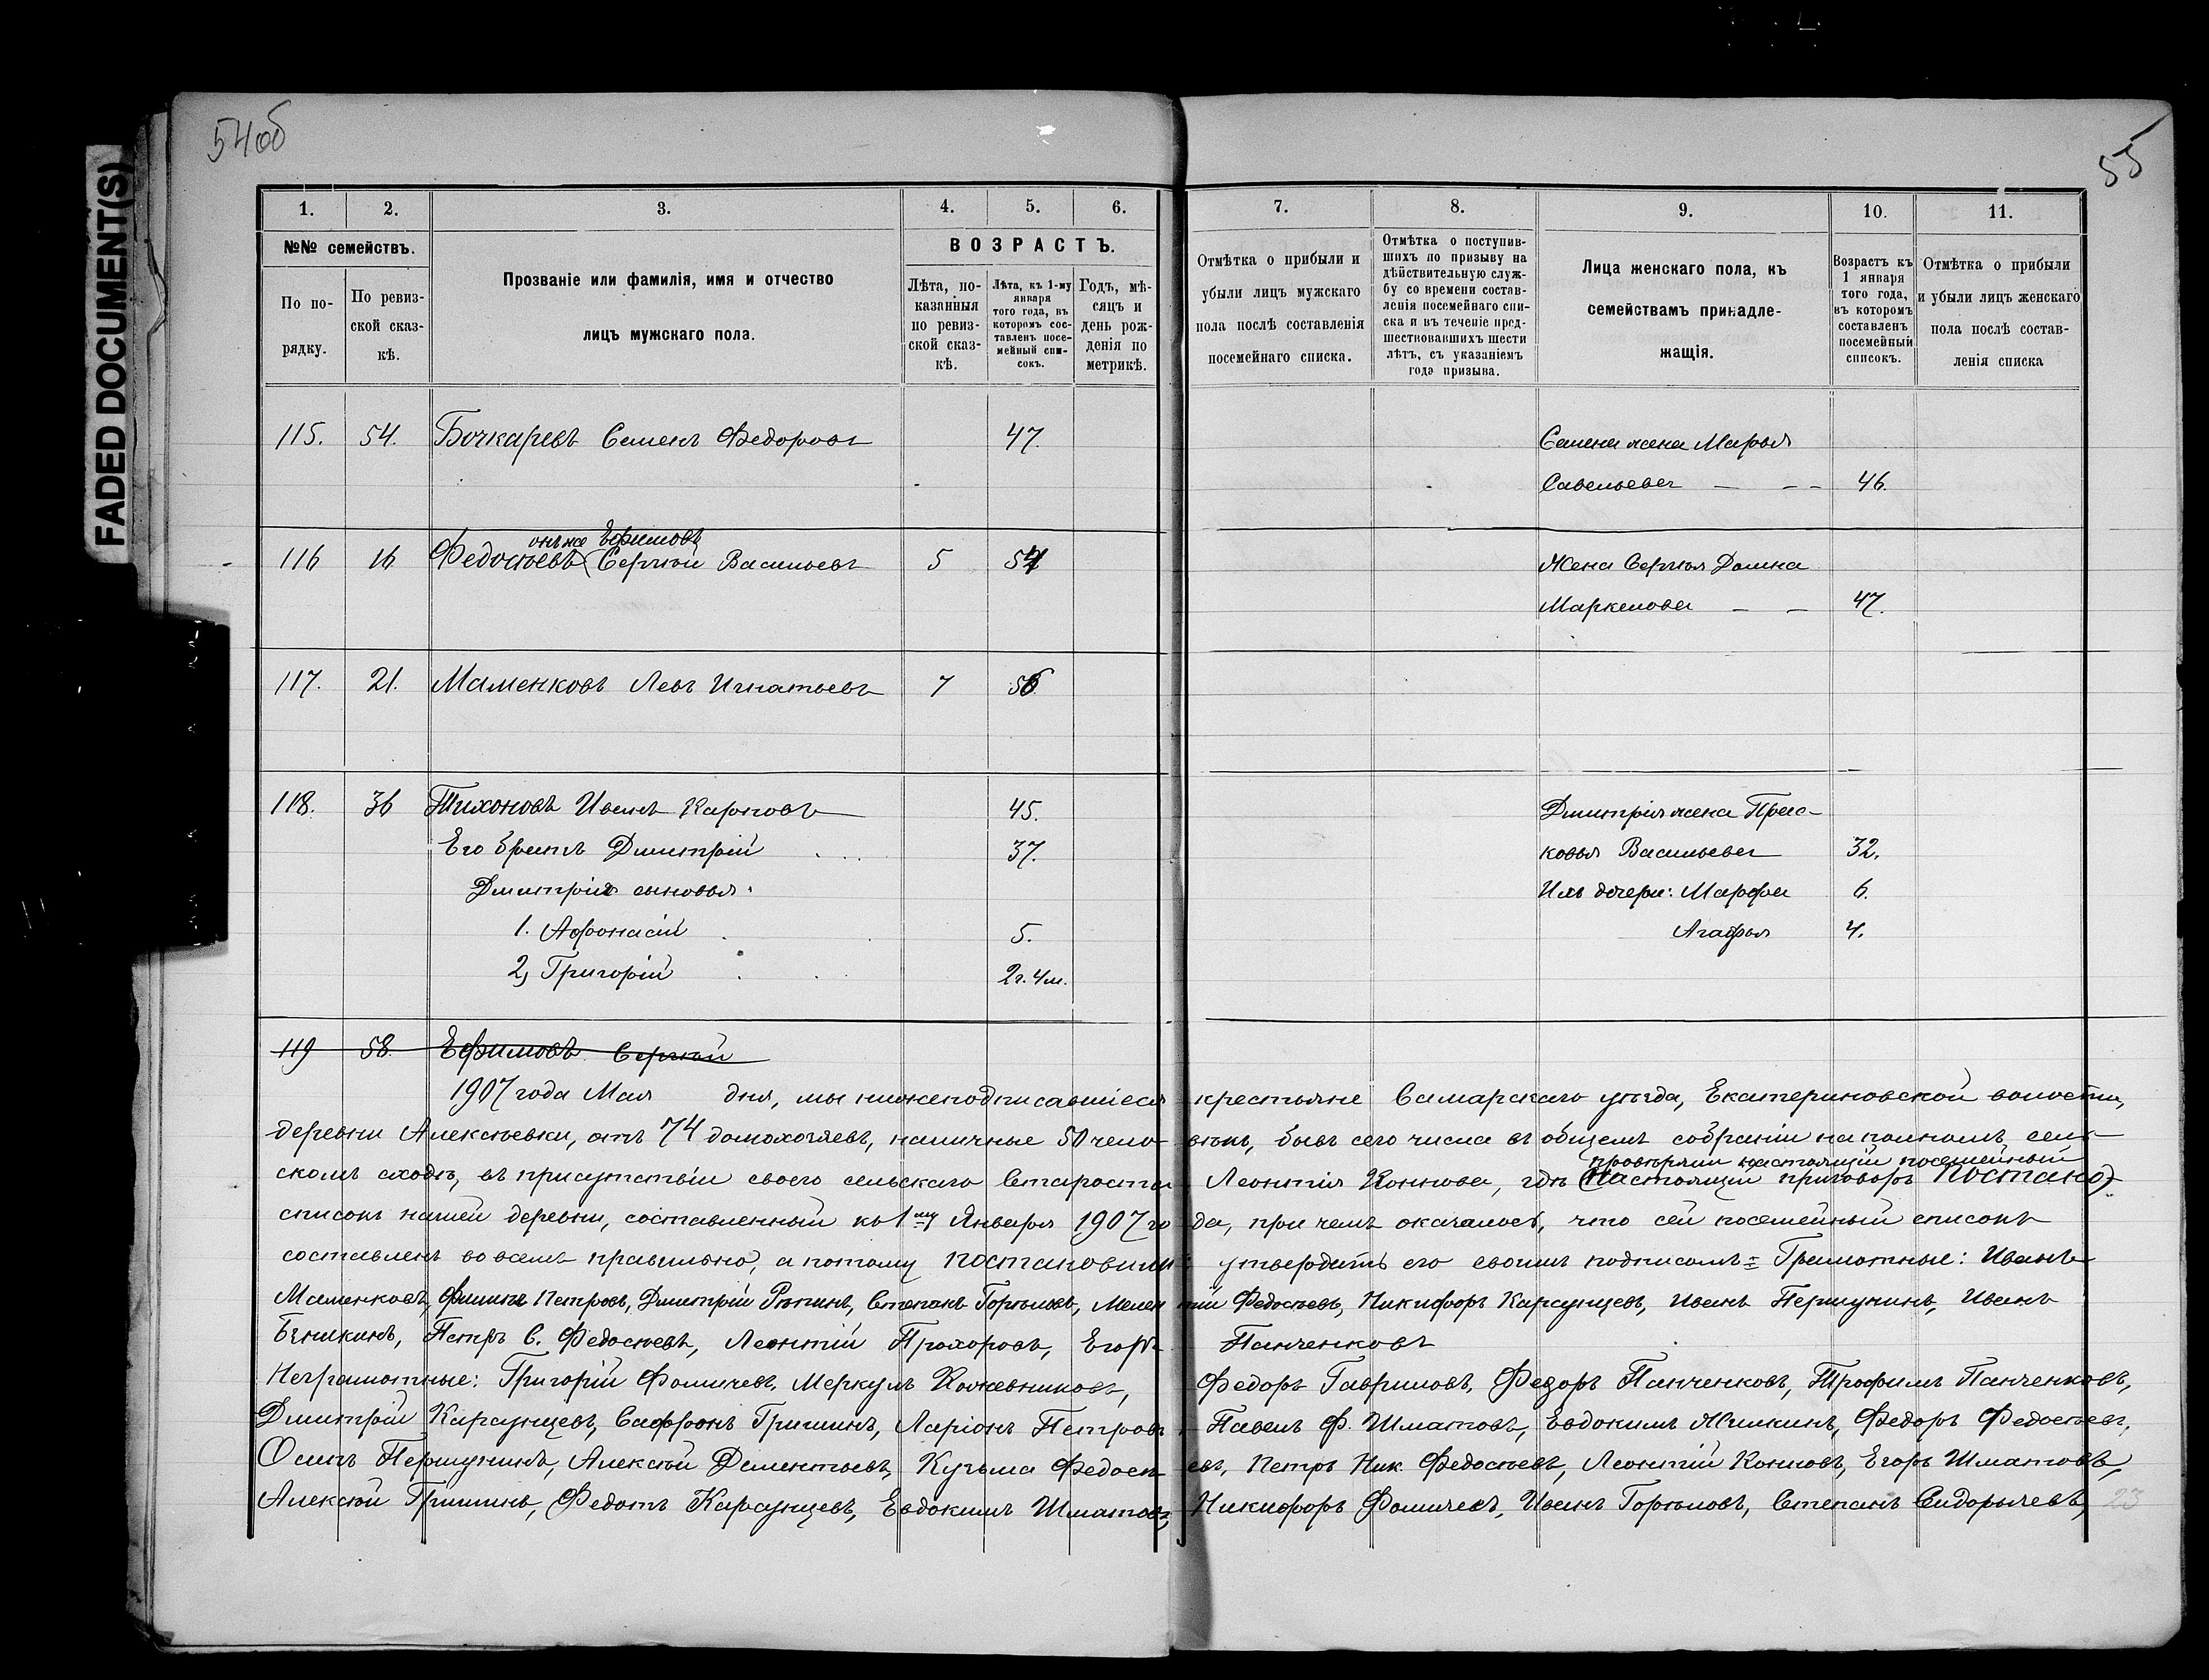 54об
55
FADED DOCUMENT(S)
1. 2. 3. 4. 5. 6. 7. 8. 9. 10. 11.
№№ семействъ.
По порядку.
По ревизской сказкѣ.
Прозваніе или фамилія, имя и отчество
лицъ мужскаго пола.
ВОЗРАСТЪ.
Лѣта, показанныя по ревизской сказкѣ.
Лѣта, къ 1-му января того года, въ которомъ составленъ посемейный списокъ.
Годъ, мѣсяцъ и день рожденія по метрикѣ.
Отмѣтка о прибыли и убыли лицъ мужскаго пола послѣ составленія посемейнаго списка.
Отмѣтка о поступившихъ по призыву на дѣйствительную службу со времени составленія посемейнаго списка и въ теченіе предшествовавшихъ шести лѣтъ, съ указаніемъ года призыва.
Лица женскаго пола, къ семействамъ принадлежащія.
Возрастъ къ 1 января того года, въ которомъ составленъ посемейный списокъ.
Отмѣтка о прибыли и убыли лицъ женскаго пола послѣ составленія списка
115. 54. Бочкаревъ Семенъ Федоровъ 47. Семена жена Марья
Савельева — – – 46.
онъ же Ефимовъ
116 16 Федосѣевъ (Сергѣй Васильевъ 5 54 Жена Сергѣя Домна
Маркелова — — 47.
117. 21. Маменковъ Левъ Игнатьевъ 7 56
118. 36 Тихоновъ Иванъ Карповъ 45. Дмитрія жена Прас-
Его братъ Дмитрій 37. ковья Васильева 32.
Дмитрія сыновья: Ихъ дочери: Марфа 6.
1. Афонасій 5. Агафья 4.
2, Григорій 2г. 4м.
119 58. Ефимовъ Сергѣй
1907 года Мая дня, мы нижеподписавшіеся крестьяне Самарскаго уѣзда, Екатериновской волости,
деревни Алексѣевки, отъ 74 домохозяевъ, наличные 50 чело- вѣкъ, бывъ сего числа въ общемъ собраніи на полномъ сель-
провѣряли настоящій посемейный
скомъ сходѣ, въ присутствіи своего сельскаго Старосты Леонтія Коннова, гдѣ (Настоящій приговоръ постано)
списокъ нашей деревни, составленный къ 1му Января 1907 го да, при чемъ оказалось, что сей посемейный списокъ
составленъ во всемъ правильно, а потому постановили: утвердить его своимъ подписомъ = Грамотные: Иванъ
Маменковъ, Филиппъ Петровъ, Дмитрій Рѣпинъ, Степанъ Горѣловъ, Мелен тій Федосѣевъ, Никифоръ Карсунцевъ, Иванъ Першунинъ, Иванъ
Петръ С. Федосѣевъ, Леонтій Прохоровъ, Егоръ Панченковъ
Неграмотные: Григорій Фомичевъ, Меркулъ Кожевниковъ, Федоръ Гавриловъ, Федоръ Панченковъ, Трофимъ Панченковъ,
Дмитрій Карсунцевъ, Сафронъ Гришинъ, Ларіонъ Петровъ Павелъ Ф. Шматовъ, Евдокимъ Федоръ Федосѣевъ,
Осипъ Першунинъ, Алексѣй Дементьевъ, Кузьма Федосѣ евъ, Петръ Ник. Федосѣевъ, Леонтій Конновъ, Егоръ Шматовъ,
Алексѣй Гришинъ, Федотъ Карсунцевъ, Евдокимъ Шматовъ, Никифоръ Фомичевъ, Иванъ Горѣловъ, Степанъ Сидорычевъ, 23